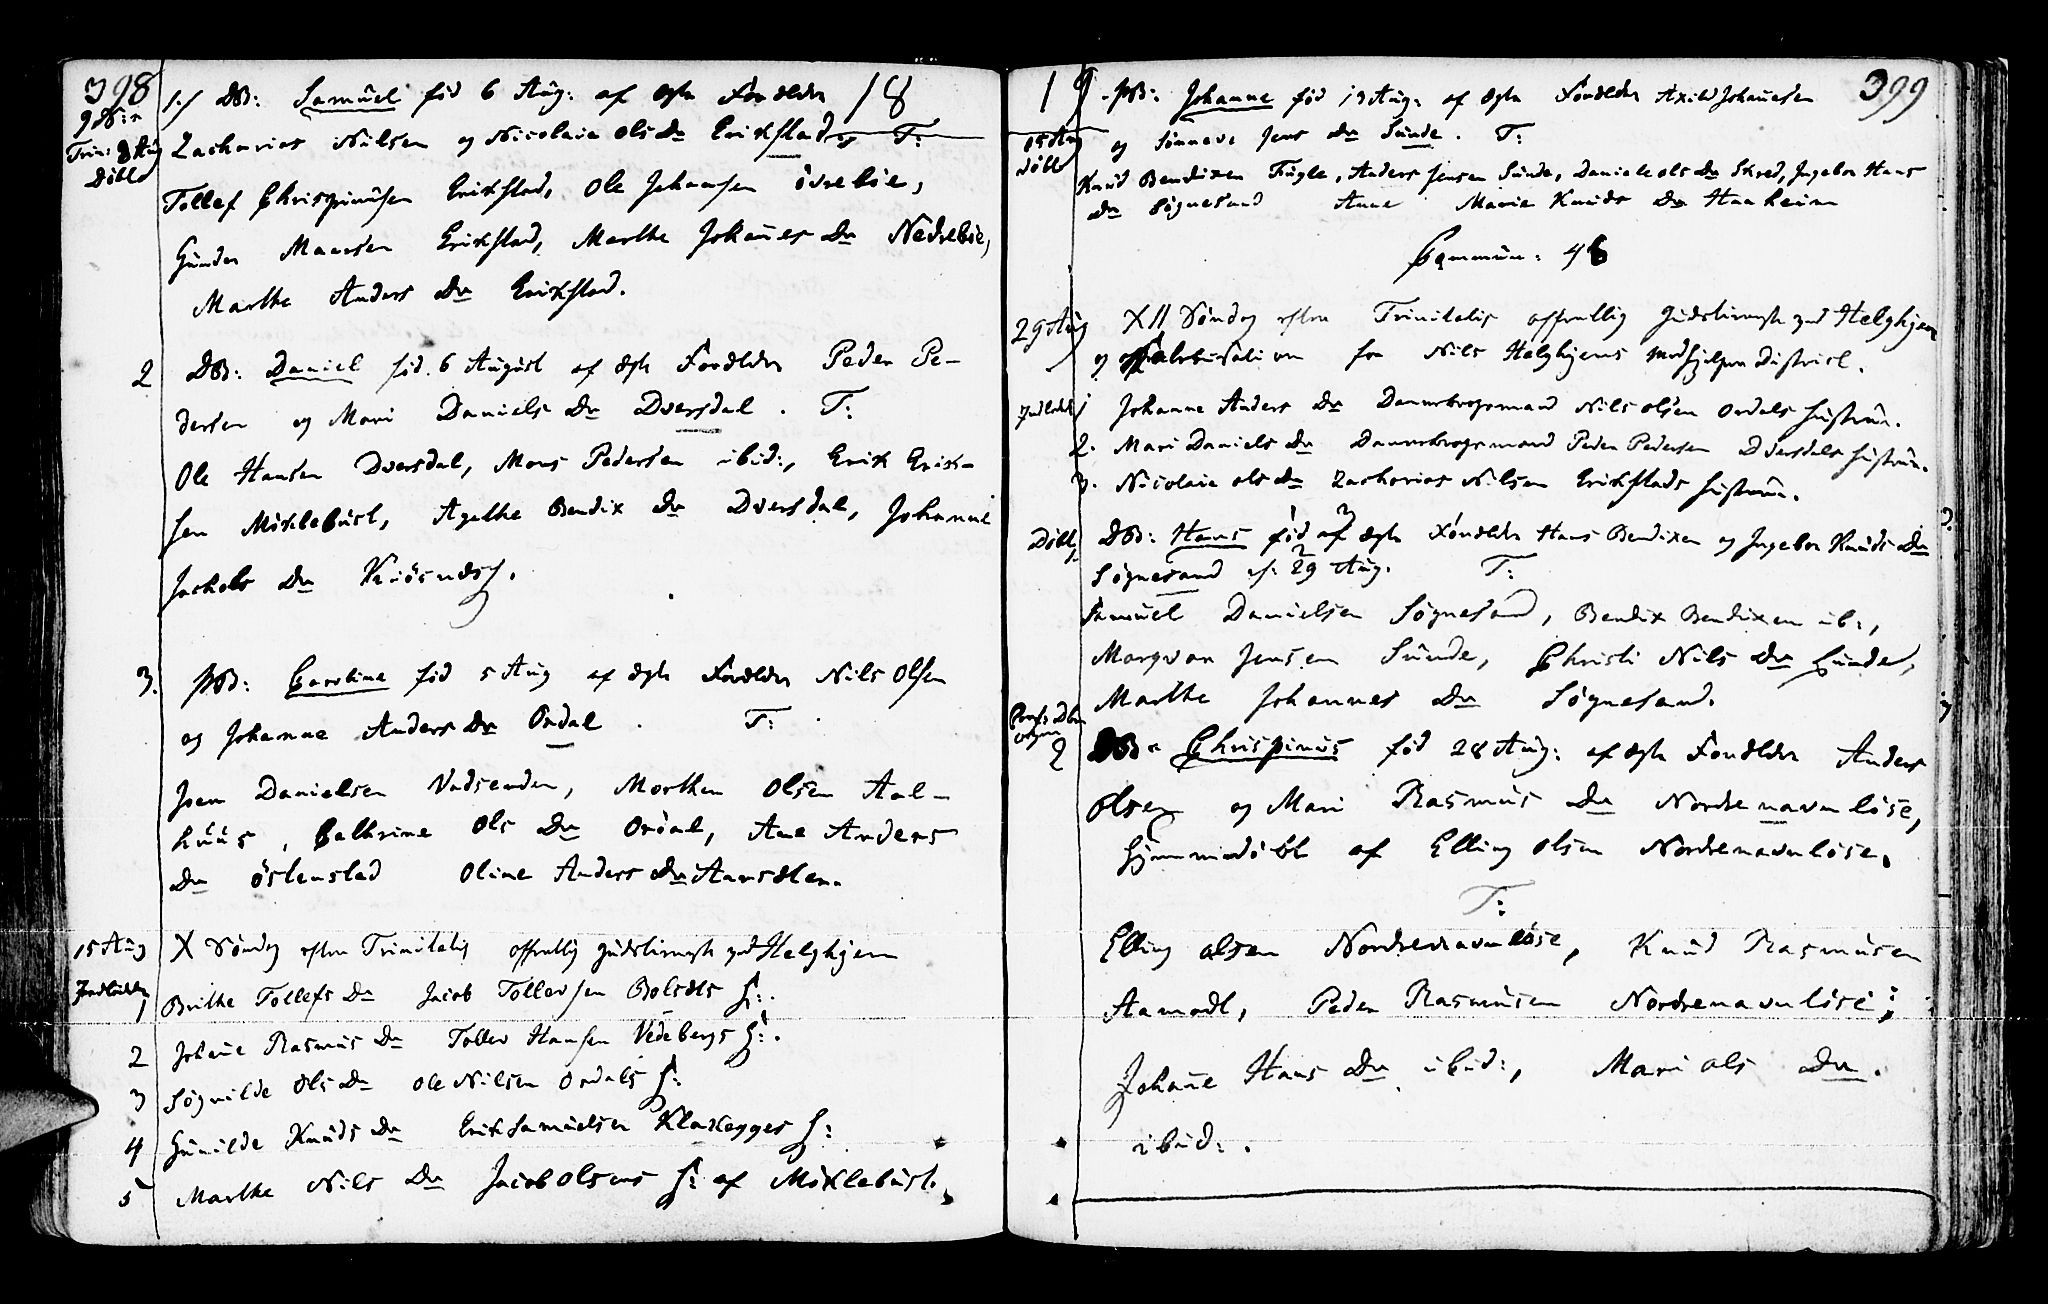 398
9de S: e
Trin: 8 Aug
Døbt
1./ DB: Samuel fød 6 Aug: af Ægte Forældre 18
Zacharias Nielsen og Nicolaia Ols Dr Erikstad. T:
Tollef Chrispinusen Erikstad, Ole Johansen Øvrebøe,
Gunder Maarsen Erikstad, Marthe Johannes Dr Nedrebøe,
Marthe Anders Dr Erikstad.
2 DB: Daniel fød. 6 August af Ægte Forældre Peder Pe-
dersen og Mari Daniels Dr Dvergsdal. T:
Ole Hansen Dversdal, Mons Pedersen ibid:, Erik Erik-
sen Mÿklebust, Agethe Bendix Dr Dversdal, Johanne
Jackobs Dr Kiøsnæs.
3. PB: Caroline fød 5 Aug af Ægte Forældre Nils Olsen
og Johanne Anders Dr Ordal. T:
Joen Danielsen Vadsenden, Morthen Olsen Aal-
huus, Cathrine Ols Dr Ordal, Ane Anders
Dr Østenstad Oline Anders Dr Aarsæten.
15 Aug X Søndag efter Trinitatis offentlig Gudstieneste ved Helghjem
Indledede
1 Brithe Tollefs Dr Jacob Tollevsen Bolsæts H:.
2 Johane Rasmus Dr Tollev Hansen Vedebergs H:.
3 Søgnilde Ols Dr Ole Nilsen Ordals H:
4 Gunilde Knuds Dr Erik Samuelsen Klakegges H:
5 Marthe Nils Dr Jacob Olsens H: af Mÿklebust.
399
19. PB: Johanne fød 13 Aug: af Ægte Forældre Axild Johanesen
og Sønneve Jens Dr Sunde. T:
15 Aug
Døbt
Knud Bendixen Fugle, Anders Jensen Sunde, Daniele Ols Dr Skred, Ingebor Hans
Dr Søgnesand Anne Marie Knuds Dr Haaheim
Commun: 48
29 Aug XII Søndag efter Trinitatis offentlig Gudstieneste ved Helghjem
og for Nils Helghjems Medhjelper District.
Indledede 1 Johanne Anders Dr Dannebrogsmand Nils Olsen Ordals Hustrue.
2. Mari Daniels Dr Dannebrogsmand Peder Pedersen Dversdals Hustrue.
3. Nicolaia Ols Dr Zacharias Nilsen Erikstads Hustrue.
Døbt, DB: Hans fød af Ægte Forældre Hans Bendixen og Ingebor Knuds Dr
Søgnesand d: 29 Aug. T:
Samuel Danielsen Søgnesand, Bendix Bendixen ib:,
Marqvor Jensen Sunde, Christi Nils Dr Sunde,
Marthe Johannes Dr Søgnesand.
2 DB: Chrispinus fød 28 Aug: af Ægte Forældre Anders
Olsen og Mari Rasmus Dr Nordrenavnløse,
Hjemmedøbt af Elling Olsen Nordrenavnløse.
T:
Elling Olsen Nordrenavnløse, Knud Rasmusen
Aamodt, Peder Rasmusen Nordrenavnløse;
Johane Hans Dr ibid:, Mari Ols Dr.
ibid:.